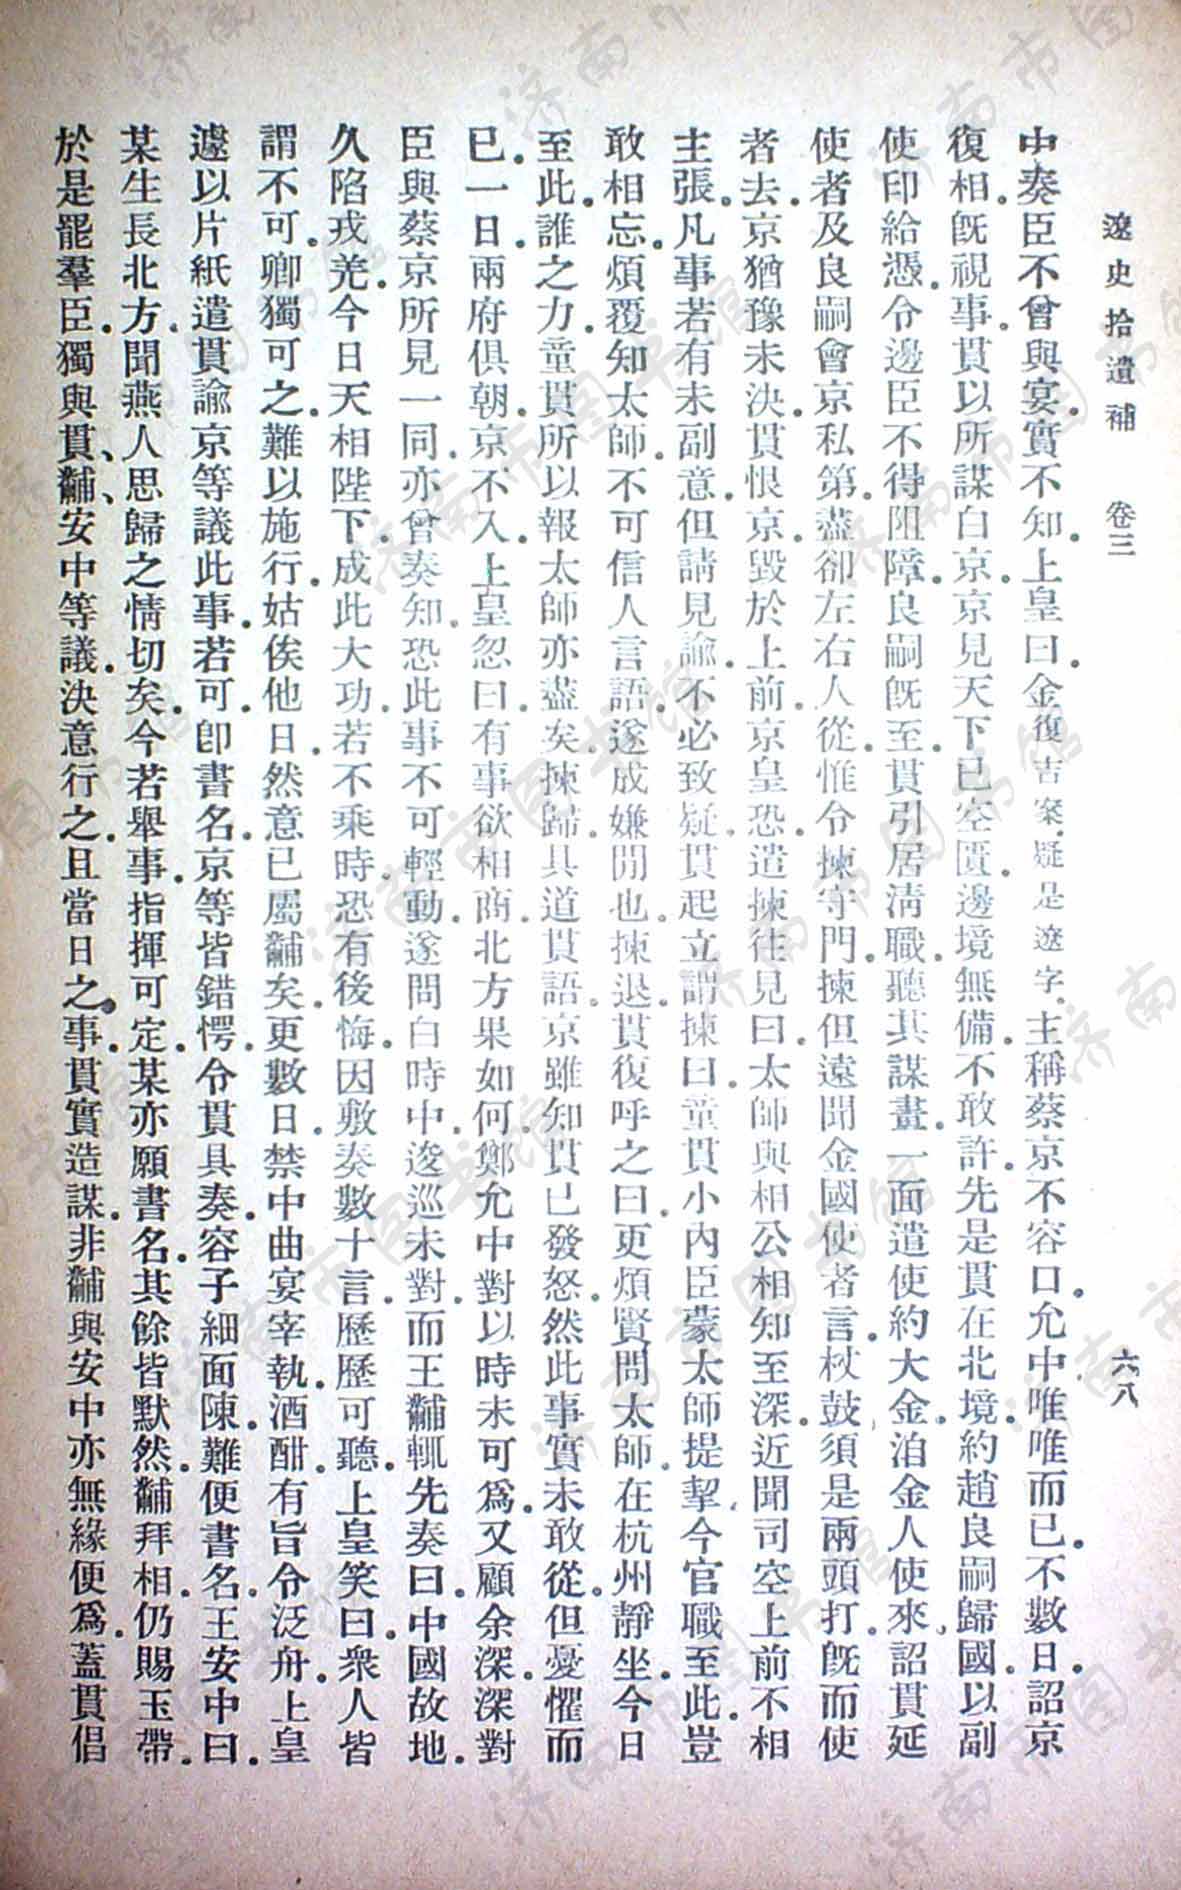 遼史拾遺補　卷三　六八
中奏臣不曾與宴。實不知。上皇曰。金復吉案。疑是遼字。主稱蔡京不容口。允中唯唯而已。不數日。詔京
復相。旣視事。貫以所謀白京。京見天下已空匱。邊境無備。不敢許。先是貫在北境。約趙良嗣歸國。以副
使印給憑。令邊臣不得阻障。良嗣旣至。貫引居淸職。聽其謀畫。一面遣使約大金。洎金人使來。詔貫延
使者及良嗣會京私第。盡卻左右人從。惟令揀等門。揀但遠聞金國使者言。杖鼓須是兩頭打。旣而使
者去。京猶豫未決。貫恨京。毀於上前。京皇恐。遣揀往見曰。太師與相公相知至深。近聞司空上前不相
主張。凡事若有未副意。但請見諭。不必致疑。貫起立謂揀曰。童貫小內臣。蒙太師提挈。今官職至此。豈
敢相忘。煩覆知太師。不可信人言語。遂成嫌閒也。揀退。貫復呼之曰。更煩賢問太師。在杭州靜坐。今日
至此。誰之力。童貫所以報太師亦盡矣。揀歸。具道貫語。京雖知貫已發怒。然此事實未敢從。但憂懼而
已。一日。兩府俱朝。京不入。上皇忽曰。有事欲相商。北方果如何。鄭允中對以時未可爲。又顧余深。深對
臣與蔡京所見一同。亦曾奏知。恐此事不可輕動。遂問白時中。逡巡未對。而王黼輒先奏曰。中國故地。
久陷戎羌。今日天相陛下。成此大功。若不乘時。恐有後悔。因敷奏數十言。歷歷可聽。上皇笑曰。衆人皆
謂不可。卿獨可之。難以施行。姑俟他日。然意已屬黼矣。更數日。禁中曲宴宰執。酒酣。有旨令泛舟。上皇
遽以片紙遣貫諭京等議此事。若可。卽書名。京等皆錯愕。令貫具奏。容子細面陳。難便書名。王安中曰。
某生長北方。聞燕人思歸之情切矣。今若舉事。指揮可定。某亦願書名。其餘皆默然。黼拜相。仍賜玉帶。
於是罷羣臣。獨與貫、黼、安中等議。決意行之。且當日之事。貫實造謀。非黼與安中亦無緣便爲。蓋貫倡